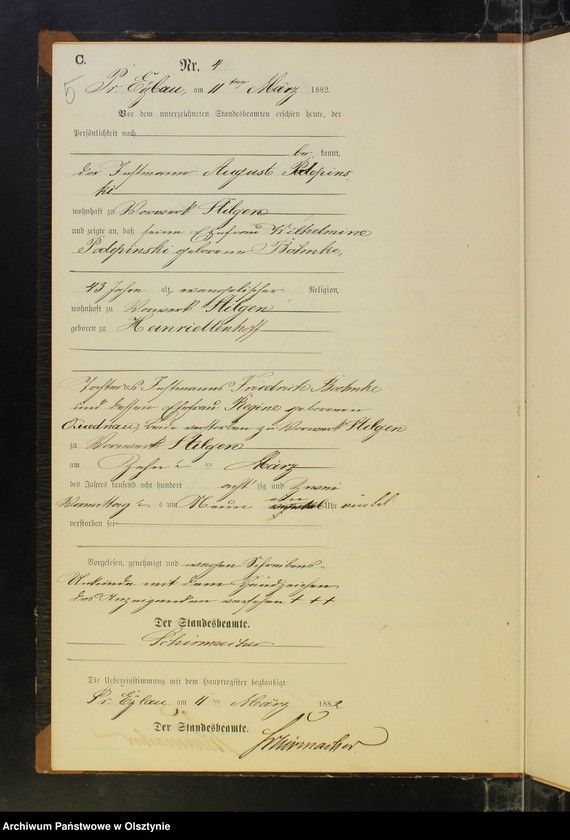 C.
Nr. 4
5
Pr. Eylau, am 11 ten März 1882.
Vor dem unterzeichneten Standesbeamten erschien heute, der
Persönlichkeit nach
be kannt,
der Instmann August Podepins
ki
wohnhaft zu Vorwerk Stilgen
und zeigte an, daß seine Ehefrau Wilhelmine
Podepinski geborene Böhnke,
43 Jahre alt, evangelischer Religion,
wohnhaft zu Vorwerk Stilgen
geboren zu Henriettenhoff
Tochter des Instmanns Friedrich Boehnke
und dessen Ehefrau Regine geborenen
beide verstorben zu Vorwerk Stilgen
zu Vorwerk Stilgen
am Zehn ten März
des Jahres tausend acht hundert acht zig und Zwei
Vormittags um Neun Uhr
verstorben sei
Vorgelesen, genehmigt und wegen Schreibens-
Unkunde mit dem Handzeichen
des Anzeigenden versehen + + +
Der Standesbeamte.
Schirmacher
Die Uebereinstimmung mit dem Hauptregister beglaubigt.
Pr. Eylau, am 11 ten März 1882.
Der Standesbeamte.
Schirmacher
Archiwum Państwowe w Olsztynie